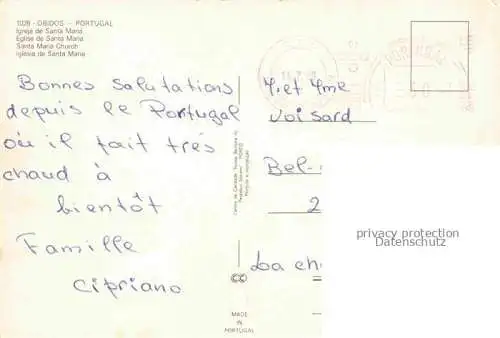 1028 - OBIDOS — PORTUGAL
Igreja de Santa Maria
Eglise de Santa Maria
Santa Maria Church
Iglesia de Santa Maria
Bonnes salutations
depuis le Portugal
où il fait très
chaud à
bientôt
Famille
Cipriano
M. et Mme
Voisard
Bel-
2
La ch
privacy protection
Datenschutz
MADE
IN
PORTUGAL